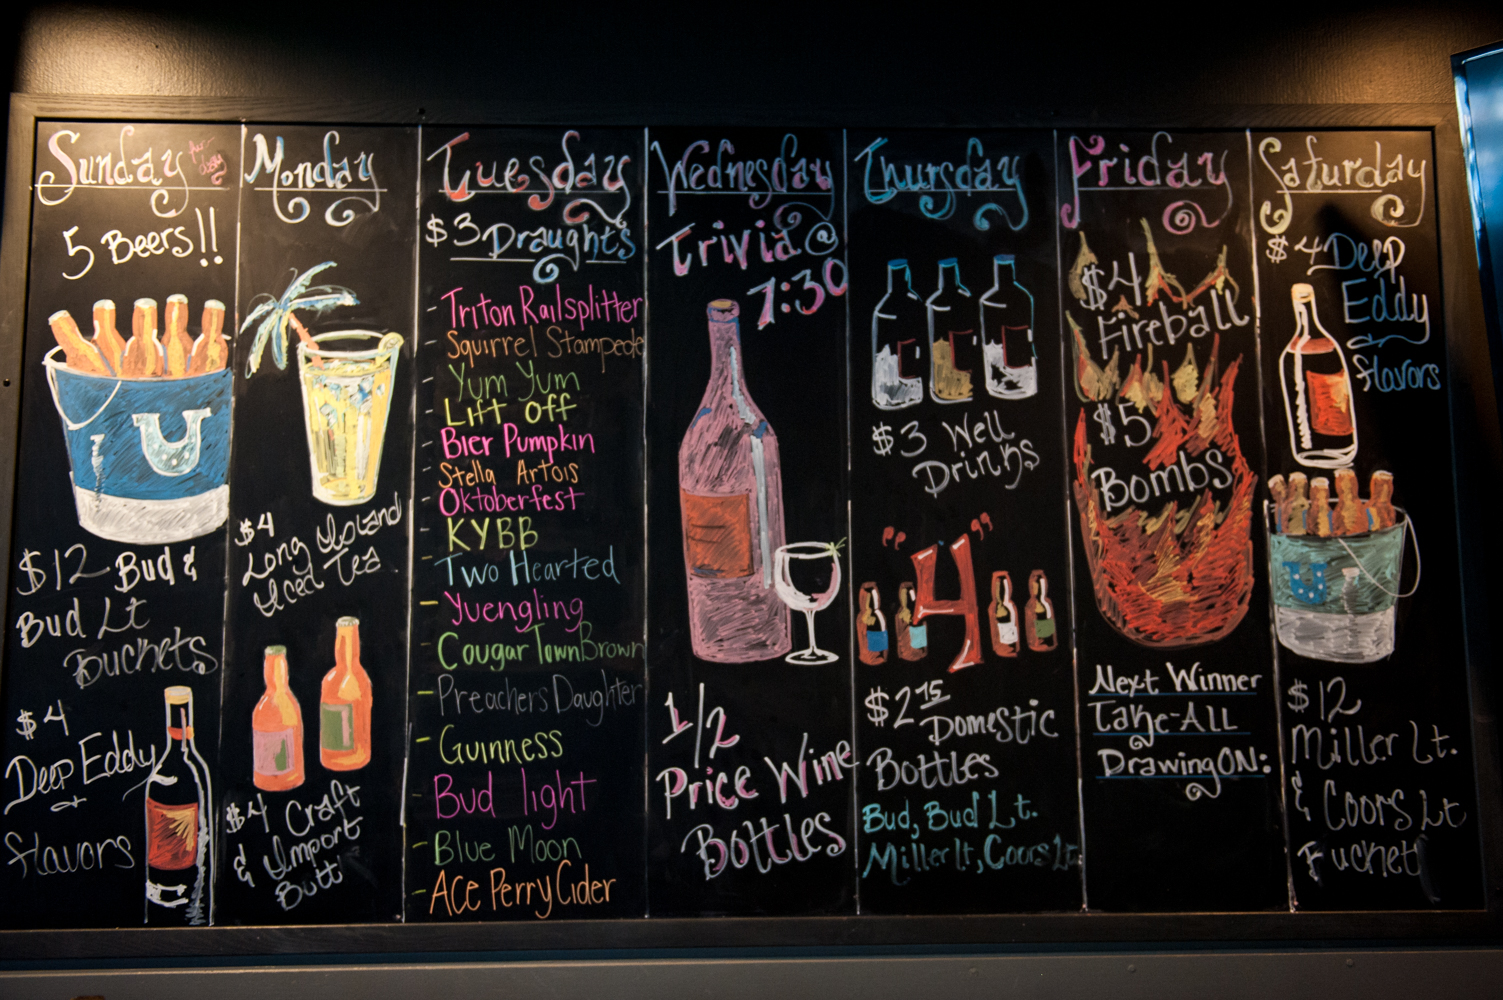 Sunday
5 Beers!!
U
$12 Bud &
Bud Lt
Buckets
$4
Deep Eddy
Flavors
Monday
$4
Long Island
Iced Tea
$4 Craft
& Import
Bott
Tuesday
$3 Draughts
- Triton Railsplitter
- Squirrel Stampede
- Yum Yum
- Lift Off
- Bier Pumpkin
- Stella Artois
- Oktoberfest
- KYBB
- Two Hearted
- Yuengling
- Cougar Town Brown
- Preachers Daughter
- Guinness
- Bud light
- Blue Moon
- Ace Perry Cider
Wednesday
Trivia @
7:30
1/2
Price Wine
Bottles
Thursday
$3 Well
Drinks
"4"
$2.75
Domestic
Bottles
Bud, Bud Lt.
Miller lt, Coors Lt
Friday
$4
Fireball
$5
Bombs
Next Winner
Take-All
Drawing ON:
Saturday
$4 Deep
Eddy
flavors
U
$12
Miller Lt.
& Coors Lt